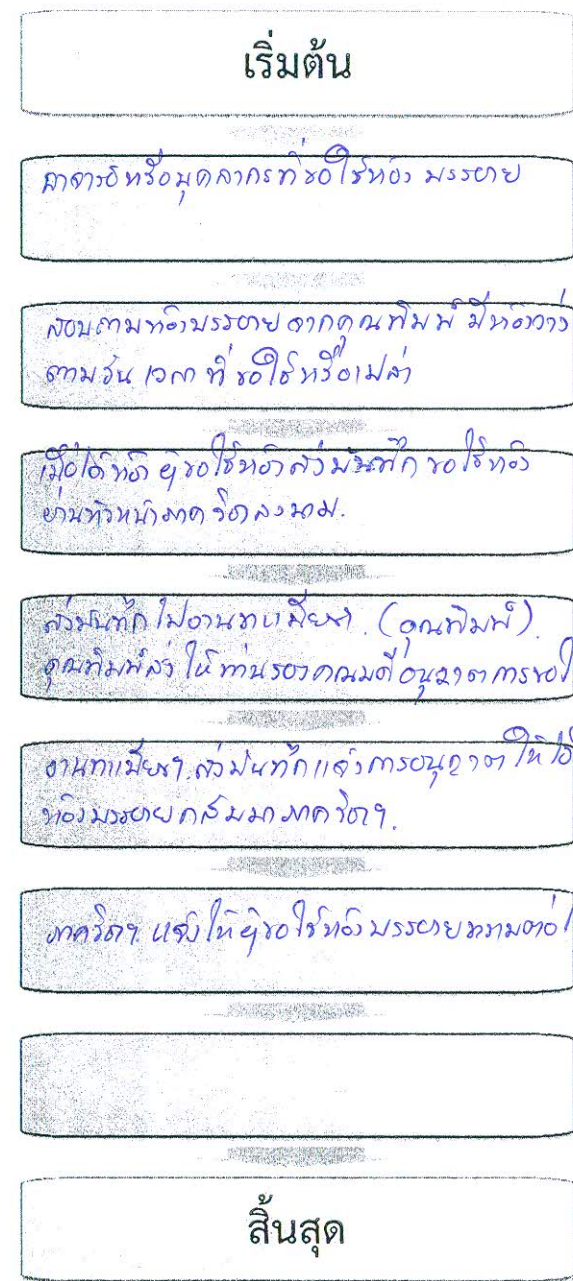 เริ่มต้น
อาจารย์หรือบุคลากรที่ขอใช้ห้อง บรรยาย
สอบถามห้องบรรยาย จากคุณพิมพ์ มีห้องว่าง
ตามวัน เวลา ที่ ขอใช้หรือเปล่า
เมื่อได้ห้อง ผู้ขอใช้ห้องส่งบันทึก ขอใช้ห้อง
ผ่านหัวหน้าภาค วิชาลงนาม.
ส่งบันทึก ไปงานทะเบียนฯ. (คุณพิมพ์).
คุณพิมพ์ส่ง ให้ท่านรองคณบดี อนุญาตการขอใ
งานทะเบียนฯ. ส่งบันทึกแจ้งการอนุญาต ให้ใช้
ห้องบรรยาย กลับมาภาควิชาฯ.
ภาควิชาฯ แจ้งให้ ผู้ขอใช้ห้องบรรยายทราบต่อไ
สิ้นสุด